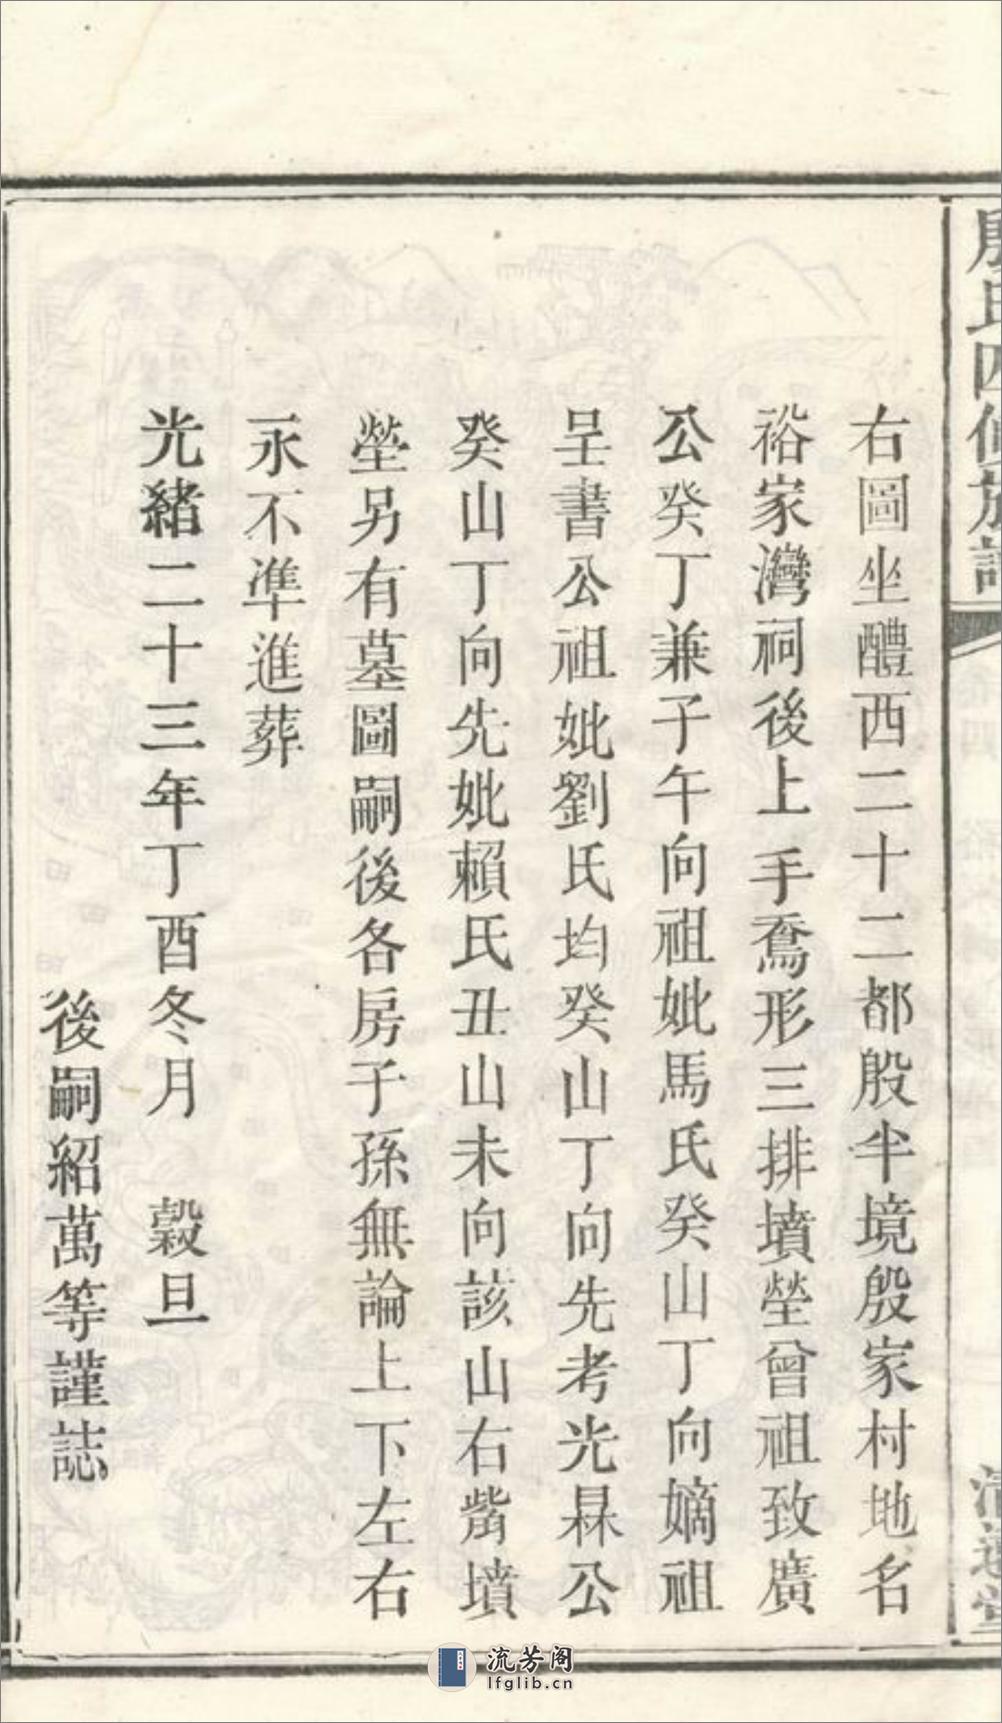 右圖坐醴西二十二都殷半境殷家村地名
裕家灣祠後上手鴌形三排墳塋曾祖致廣
公癸丁兼子午向祖妣馬氏癸山丁向嫡祖
呈書公祖妣劉氏均癸山丁向先考光槑公
癸山丁向先妣賴氏丑山未向該山右觜墳
塋另有墓圖嗣後各房子孫無論上下左右
永不準進葬
光緒二十三年丁酉冬月 穀旦
後嗣紹萬等謹誌
流芳阁
lfglib.cn